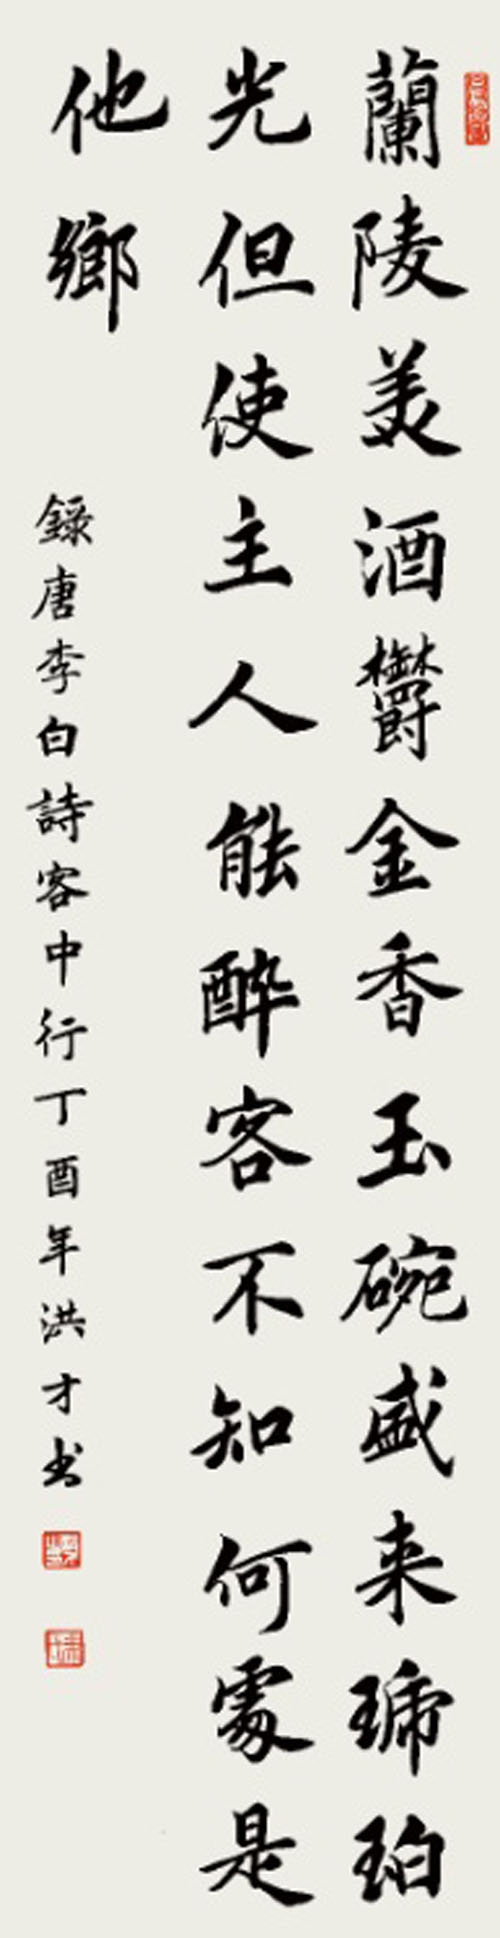 蘭陵美酒欝金香玉碗盛来琥珀
光但使主人能醉客不知何處是
他鄉
録唐李白詩客中行丁酉年洪才书